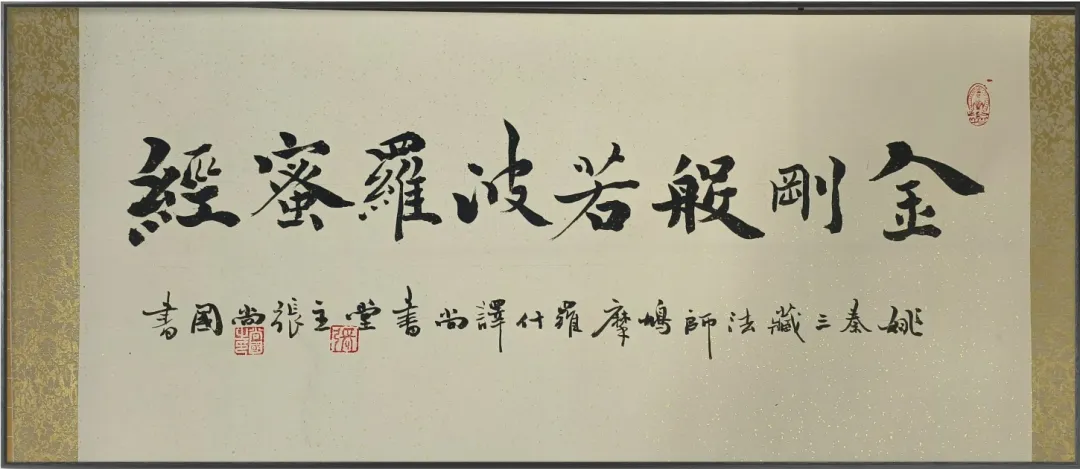 金剛般若波羅蜜經
姚秦三藏法師鳩摩羅什譯尚書堂主張尚國書